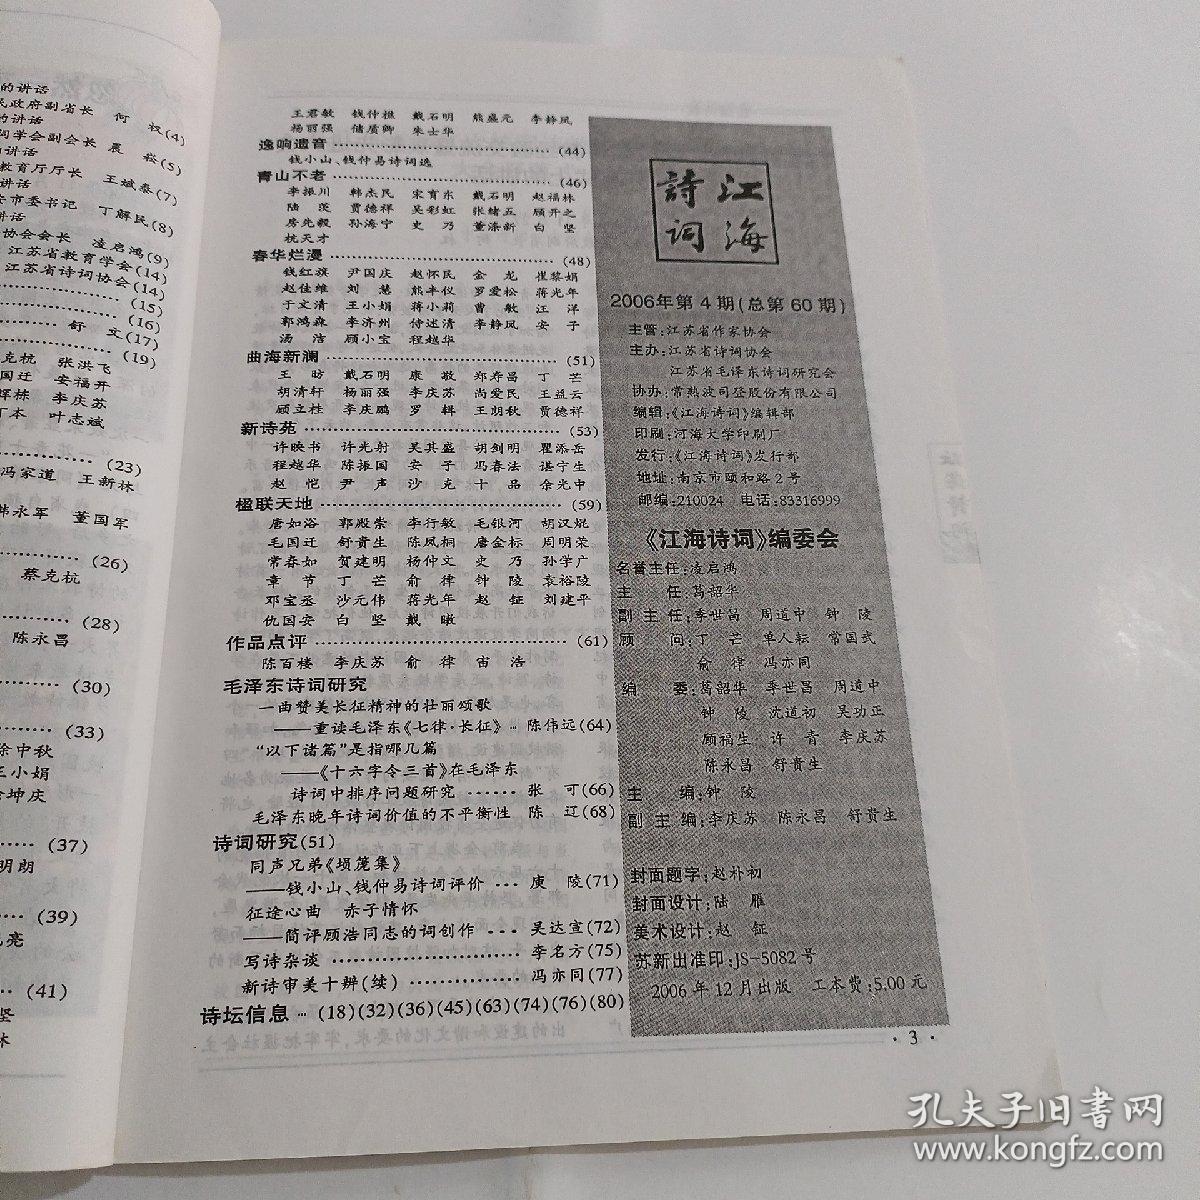 的讲话
民政府副省长 何 权(4)
的讲话
词学会副会长 晨 崧(5)
讲话
教育厅厅长 王斌泰(7)
讲话
安市委书记 丁解民(8)
讲话
协会会长 凌启鸿(9)
江苏省教育学会(14)
江苏省诗词协会(14)
(15)
(16)
舒 文(17)
(19)
克杭 张洪飞
国迁 安福开
辉栋 李庆苏
丁本 叶志斌
(23)
冯家道 王新林
韩永军 董国军
(26)
蔡克杭
(28)
陈永昌
(30)
(33)
徐中秋
王小娟
徐坤庆
(37)
明朗
(39)
(41)
王君敏 钱仲樵 戴石明 熊盛元 李静凤
杨丽强 储质卿 朱士华
逸响遗音 (44)
钱小山、钱仲易诗词选
青山不老 (46)
李振川 韩杰民 宋育东 戴石明 赵福林
陆茨 贾德祥 吴彩虹 张绪五 顾开之
房先毅 孙海宁 史乃 董涤新 白坚
枕天才
春华烂漫 (48)
钱红旗 尹国庆 赵怀民 金龙 崔黎娟
赵佳维 刘慧 熊丰仪 罗爱松 蒋光年
于文清 王小娟 蒋小莉 曹敏 江洋
郭鸿森 李济州 侍述清 李静凤 安子
汤洁 顾小宝 程越华
曲海新澜 (51)
王昉 戴石明 康敬 郑寿昌 丁芒
胡清轩 杨丽强 李庆苏 尚爱民 王益云
顾立性 李庆鹏 罗辑 王朗秋 贾德祥
新诗苑 (53)
许映书 许光射 吴其盛 胡剑明 瞿添岳
程越华 陈振国 安子 冯春法 谌宁生
赵恺 尹声 沙克 十品 余光中
楹联天地 (59)
唐如浴 郭殿崇 李行敏 毛银河 胡汉焜
毛国迁 舒贵生 陈凤桐 唐金标 周明荣
常春如 贺建明 杨仲文 史乃 孙学广
章节 丁芒 俞律 钟陵 袁裕陵
邓宝丞 沙元伟 蒋光年 赵钲 刘建平
仇国安 白坚 戴暾
作品点评 (61)
陈百楼 李庆苏 俞律 宙浩
毛泽东诗词研究
一曲赞美长征精神的壮丽颂歌
——重读毛泽东《七律·长征》 陈伟远(64)
“以下诸篇”是指哪几篇
——《十六字令三首》在毛泽东
诗词中排序问题研究 张 可(66)
毛泽东晚年诗词价值的不平衡性 陈 辽(68)
诗词研究(51)
同声兄弟《埙篪集》
——钱小山、钱仲易诗词评价 庾 陵(71)
征途心曲 赤子情怀
——简评顾浩同志的词创作 吴达宣(72)
写诗杂谈 李名方(75)
新诗审美十辨(续) 冯亦同(77)
诗坛信息 (18)(32)(36)(45)(63)(74)(76)(80)
江海
詩词
2006年第4期(总第60期)
主管:江苏省作家协会
主办:江苏省诗词协会
江苏省毛泽东诗词研究会
协办:常熟波司登股份有限公司
编辑:《江海诗词》编辑部
印刷:河海大学印刷厂
发行:《江海诗词》发行部
地址:南京市颐和路2号
邮编:210024 电话:83316999
《江海诗词》编委会
名誉主任:凌启鸿
主任:葛韶华
副主任:季世昌 周道中 钟陵
顾问:丁芒 单人耘 常国武
俞律 冯亦同
编委:葛韶华 季世昌 周道中
钟陵 沈道初 吴功正
顾福生 许青 李庆苏
陈永昌 舒贵生
主编:钟陵
副主编:李庆苏 陈永昌 舒贵生
封面题字:赵朴初
封面设计:陆雁
美术设计:赵钲
苏新出准印:JS-5082号
2006年12月出版 工本费:5.00元
·3·
孔夫子旧书网
www.kongfz.com